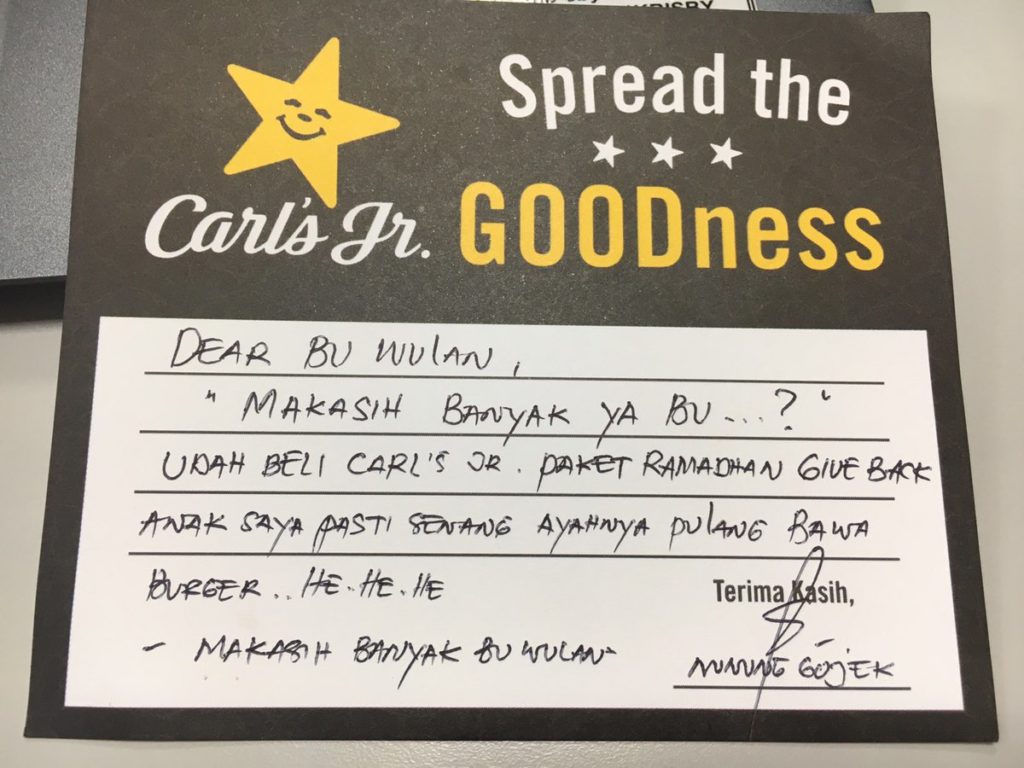 Carl's Jr.
Spread the
GOODness
DEAR BU WULAN,
" MAKASIH BANYAK YA BU...? "
UDAH BELI CARL'S JR. PAKET RAMADHAN GIVE BACK
ANAK SAYA PASTI SENANG AYAHNYA PULANG BAWA
BURGER .. HE.HE.HE
Terima Kasih,
- MAKASIH BANYAK BU WULAN-
NUNUNG GOJEK